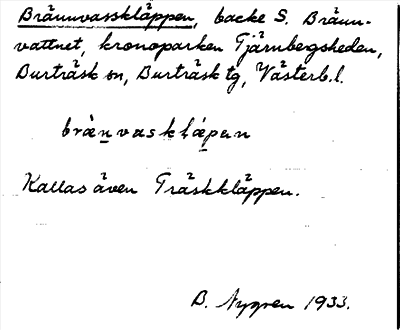 Brännvasskläppen, backe S. Bränn-
vattnet, kronoparken Tjärnbergsheden,
Burträsk sn, Burträsk tg, Västerb.l.
brä̀nvasklǽpen
Kallas även Träskkläppen.
B. Nygren 1933.